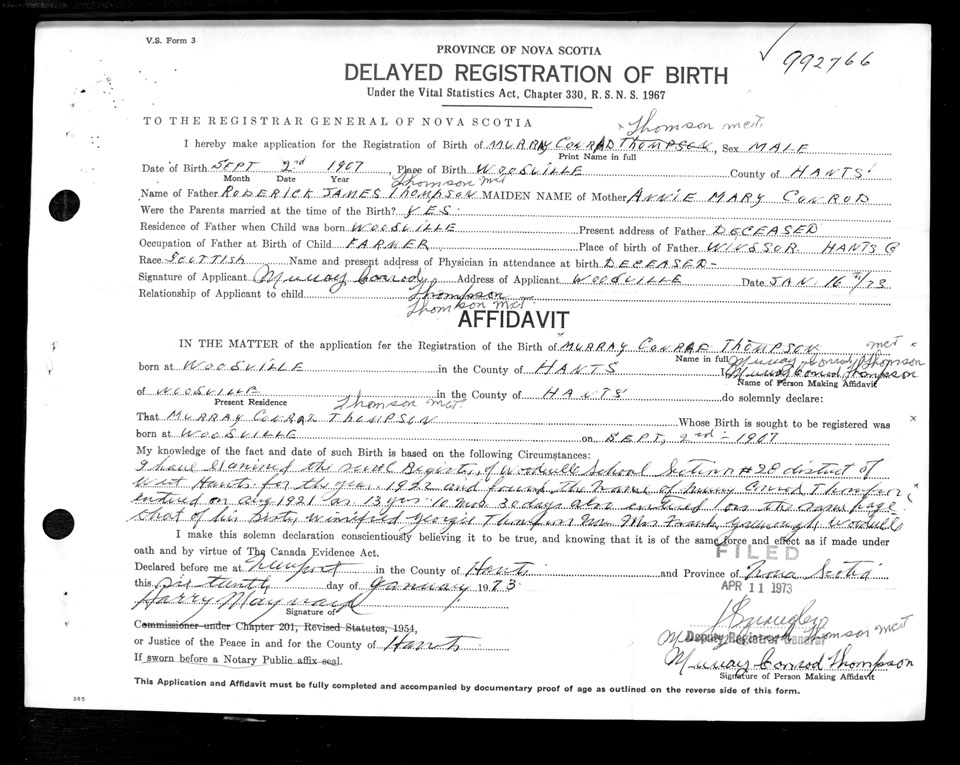 V.S. Form 3
992766
PROVINCE OF NOVA SCOTIA
DELAYED REGISTRATION OF BIRTH
Under the Vital Statistics Act, Chapter 330, R. S. N. S. 1967
TO THE REGISTRAR GENERAL OF NOVA SCOTIA
x Thomson
I hereby make application for the Registration of Birth of MURRAY CONRAD THOMPSON, Sex MALE
Print Name in full
Date of Birth SEPT 2nd 1907 Place of Birth WOODVILLE County of HANTS
Month Date Year
Thomson
Name of Father RODERICK JAMES THOMPSON MAIDEN NAME of Mother ANNIE MARY CONROD
Were the Parents married at the time of the Birth? YES
Residence of Father when Child was born WOODVILLE Present address of Father DECEASED
Occupation of Father at Birth of Child FARMER Place of birth of Father WINDSOR HANTS
Race SCOTTISH Name and present address of Physician in attendance at birth DECEASED-
Signature of Applicant Murray Conrod Address of Applicant WOODVILLE Date JAN. 16th/73
Relationship of Applicant to child Thompson
Thomson
AFFIDAVIT
IN THE MATTER of the application for the Registration of the Birth of MURRAY CONRAD THOMPSON
Name in full Murray Conrod Thomson
born at WOODVILLE in the County of HANTS I, Murray Conrod Thompson
Name of Person Making Affidavit
of WOODVILLE in the County of HANTS do solemnly declare:
Present Residence Thomson
That MURRAY CONRAD THOMPSON Whose Birth is sought to be registered was
born at WOODVILLE on SEPT, 2nd - 1907
My knowledge of the fact and date of such Birth is based on the following Circumstances:
I have examined the school Register of Woodville School Section #28 district of
West Hants for the year 1922 and found the name of Murray Conrod Thompson
entered on Aug 1921 as 13 yrs. 10 Mos 30 days also entered on the same page
that of his sister Winifred Georgie Thompson Mrs Frank Greenough Woodville
I make this solemn declaration conscientiously believing it to be true, and knowing that it is of the same force and effect as if made under
oath and by virtue of The Canada Evidence Act.
FILED
Declared before me at Newport in the County of Hants and Province of Nova Scotia
APR 11 1973
this Sixteenth day of January 1973
Harry Maynard
Signature of
Commissioner under Chapter 201, Revised Statutes, 1954,
Murray Conrod Thomson
Deputy Registrar General
or Justice of the Peace in and for the County of Hants
Murray Conrod Thompson
If sworn before a Notary Public affix seal.
Signature of Person Making Affidavit
This Application and Affidavit must be fully completed and accompanied by documentary proof of age as outlined on the reverse side of this form.
385